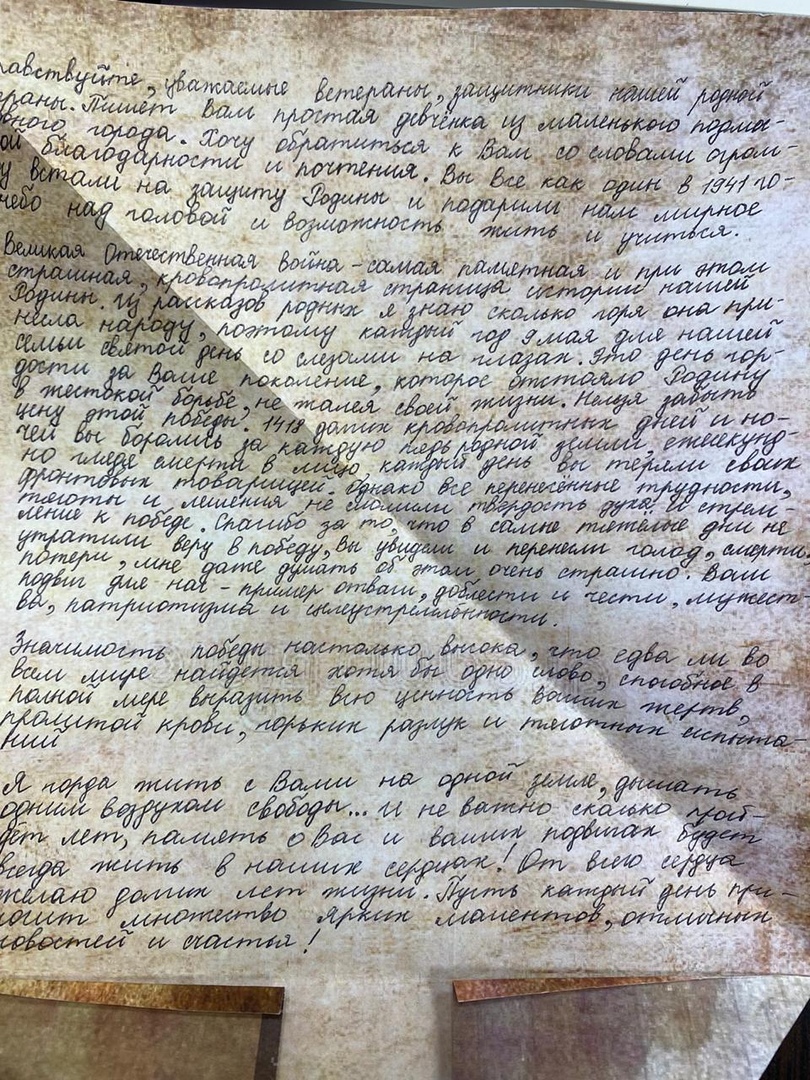 равствуйте, уважаемые ветераны, защитники нашей родной
раны. Пишет Вам простая девчёнка из маленького подмо-
ного города. Хочу обратиться к Вам со словами огром-
ой благодарности и почтения. Вы все как один в 1941 го-
у встали на защиту Родины и подарили нам мирное
небо над головой и возможность жить и учиться.
Великая Отечественная война - самая памятная и при этом
страшная, кровопролитная страница истории нашей
Родины. Из рассказов родных я знаю сколько горя она при-
несла народу, поэтому каждый год 9 мая для нашей
семьи святой день со слезами на глазах. Это день гор-
дости за Ваше поколение, которое отстояло Родину
в жестокой борьбе, не жалея своей жизни. Нельзя забыть
цену этой победы. 1418 долгих кровопролитных дней и но-
чей вы боролись за каждую пядь родной земли, ежесекунд-
но глядя смерти в лицо, каждый день вы теряли своих
фронтовых товарищей. Однако все перенесённые трудности,
тяготы и лишения не сломили твёрдость духа и стрем-
ление к победе. Спасибо за то, что в самые тяжёлые дни не
утратили веру в победу, Вы увидели и перенесли голод, смерти,
потери, мне даже думать об этом очень страшно. Ваш
подвиг для нас - пример отваги, доблести и чести, мужест-
ва, патриотизма и целеустремлённости.
Значимость победы настолько высока, что едва ли во
всем мире найдется хотя бы одно слово, способное в
полной мере выразить всю ценность Ваших жертв,
пролитой крови, горьких разлук и тяготных испыта-
ний
Я горда жить с Вами на одной земле, дышать
одним воздухом свободы... И не важно сколько прой-
дет лет, память о Вас и ваших подвигах будет
всегда жить в наших сердцах! От всего сердца
желаю долгих лет жизни. Пусть каждый день при-
носит множество ярких моментов, отличных
новостей и счастья!